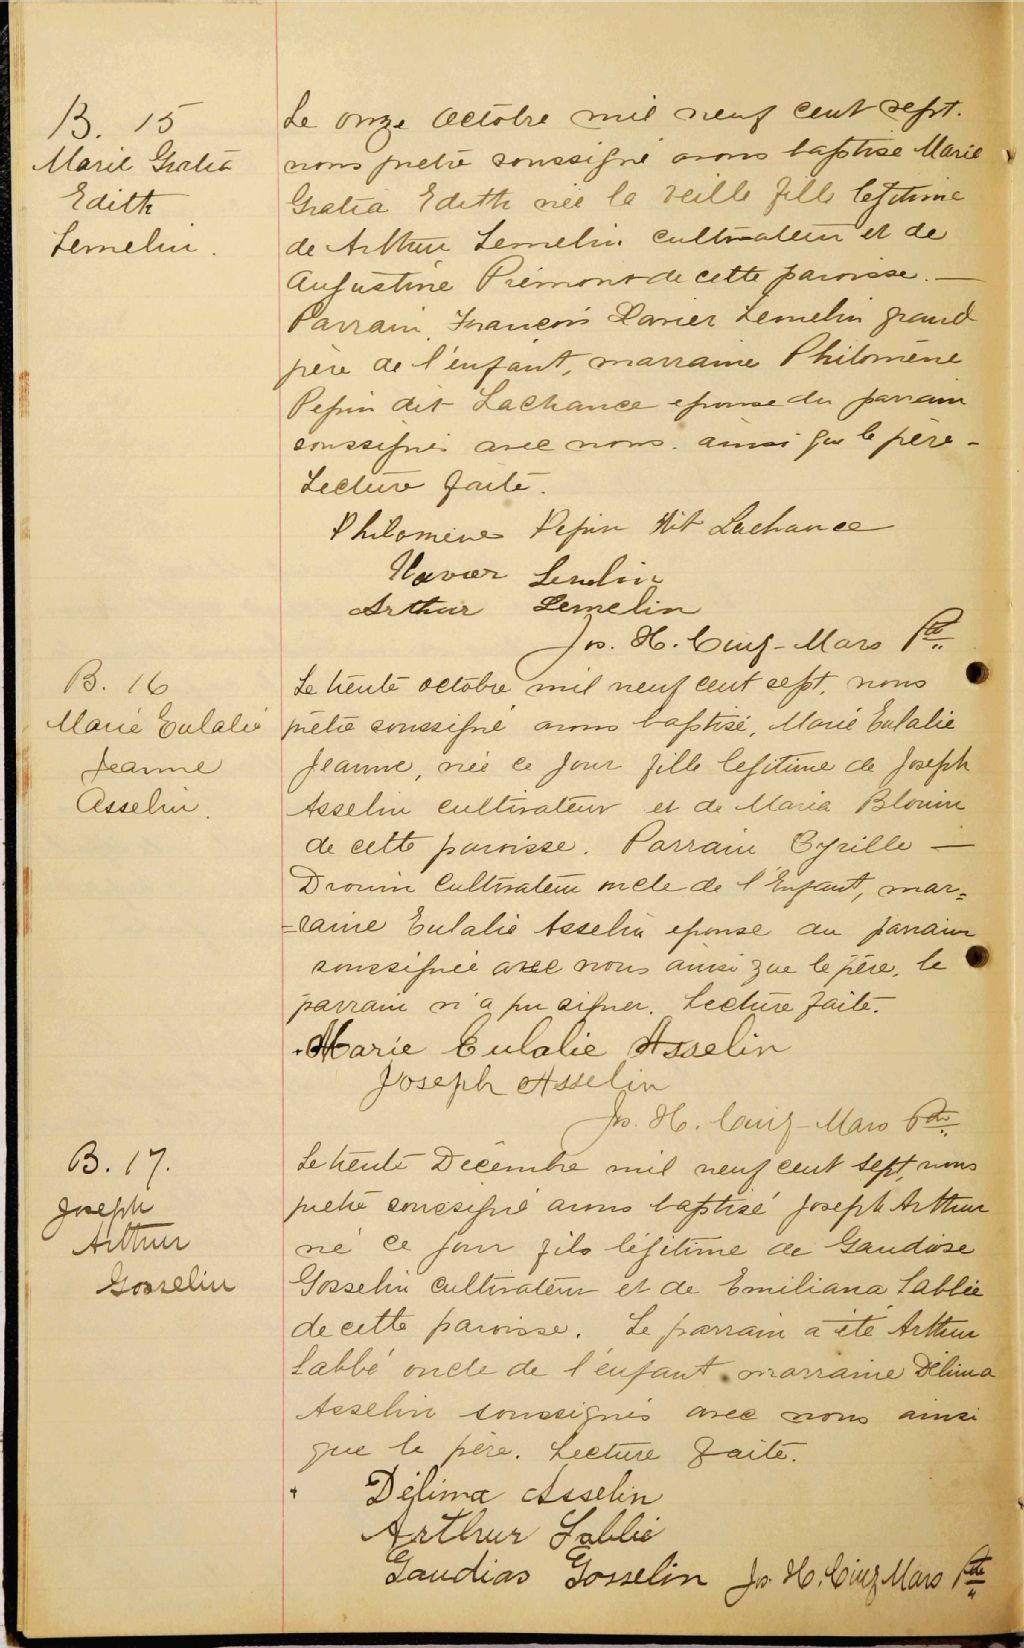 B. 15
Marie Gratia
Edith
Lemelin.
Le onze Octobre mil neuf cent sept.
nous prêtre soussigné avons baptisé Marie
Gratia Edith née la veille fille legitime
de Arthur Lemelin cultivateur et de
Augustine Prémont de cette paroisse. —
Parrain François Xavier Lemelin grand
père de l'enfant, marraine Philomène
Pepin dit Lachance epouse du parrain
soussignés avec nous. ainsi que le père -
Lecture faite.
Philomene Pepin dit Lachance
Xavier Lemelin
Arthur Lemelin
Jos. H. Cinq-Mars Ptre
B. 16
Marie Eulalie
Jeanne
Asselin.
Le trente octobre mil neuf cent sept, nous
prêtre soussigné avons baptisé, Marie Eulalie
Jeanne, née ce jour fille legitime de Joseph
Asselin cultivateur et de Maria Blouin
de cette paroisse. Parrain Cyrille —
Drouin cultivateur oncle de l'Enfant, mar=
=raine Eulalie Asselin epouse du parrain
soussignée avec nous ainsi que le père, le
parrain n'a pu signer. Lecture faite.
Marie Eulalie Asselin
Joseph Asselin
Jos. H. Cinq-Mars Ptre
B. 17.
Joseph
Arthur
Gosselin
Le trente Décembre mil neuf cent sept, nous
prêtre soussigné avons baptisé Joseph Arthur
né ce jour fils légitime de Gaudiose
Gosselin cultivateur et de Emiliana Labbée
de cette paroisse. Le parrain a été Arthur
Labbé oncle de l'enfant marraine Délima
Asselin soussignés avec nous ainsi
que le père. Lecture faite.
Délima Asselin
Arthur Labbé
Gaudias Gosselin Jos. H. Cinq Mars Ptre